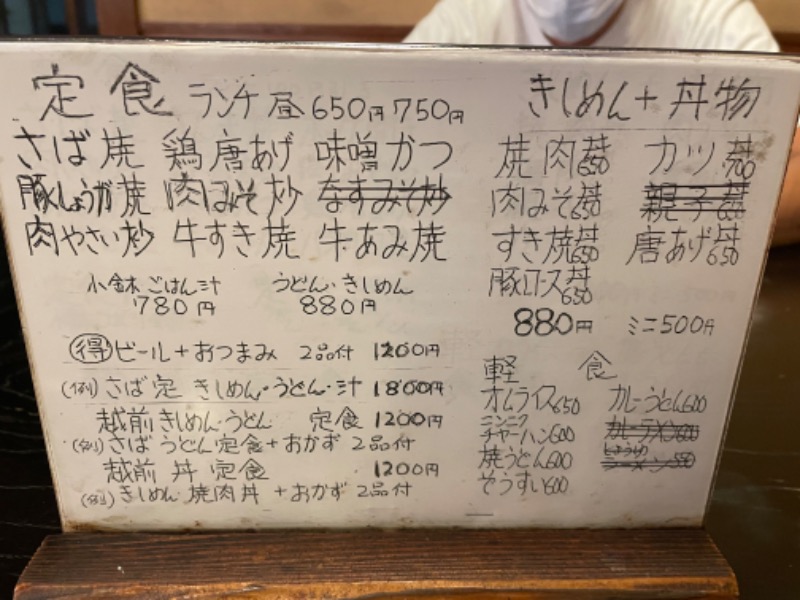 定食 ランチ 昼 650円 750円
さば焼 鶏唐あげ 味噌かつ
豚しょうが焼 肉みそ炒 なすみそ炒
肉やさい炒 牛すき焼 牛あみ焼
小鉢 ごはん 汁 うどん・きしめん
780円 880円
得 ビール+おつまみ 2品付 1200円
(例) さば定 きしめん・うどん・汁 1800円
越前 きしめん・うどん 定食 1200円
(例) さばうどん定食+おかず 2品付
越前 丼 定食 1200円
(例) きしめん 焼肉丼 +おかず 2品付
きしめん+丼物
焼肉丼650 カツ丼700
肉みそ丼650 親子丼
すき焼丼650 唐あげ丼650
豚ロース丼650
880円 ミニ500円
軽食
オムライス650 カレーうどん600
ニンニク
チャーハン600 カレーラーメン600
焼うどん600 しょうゆラーメン550
ぞうすい600